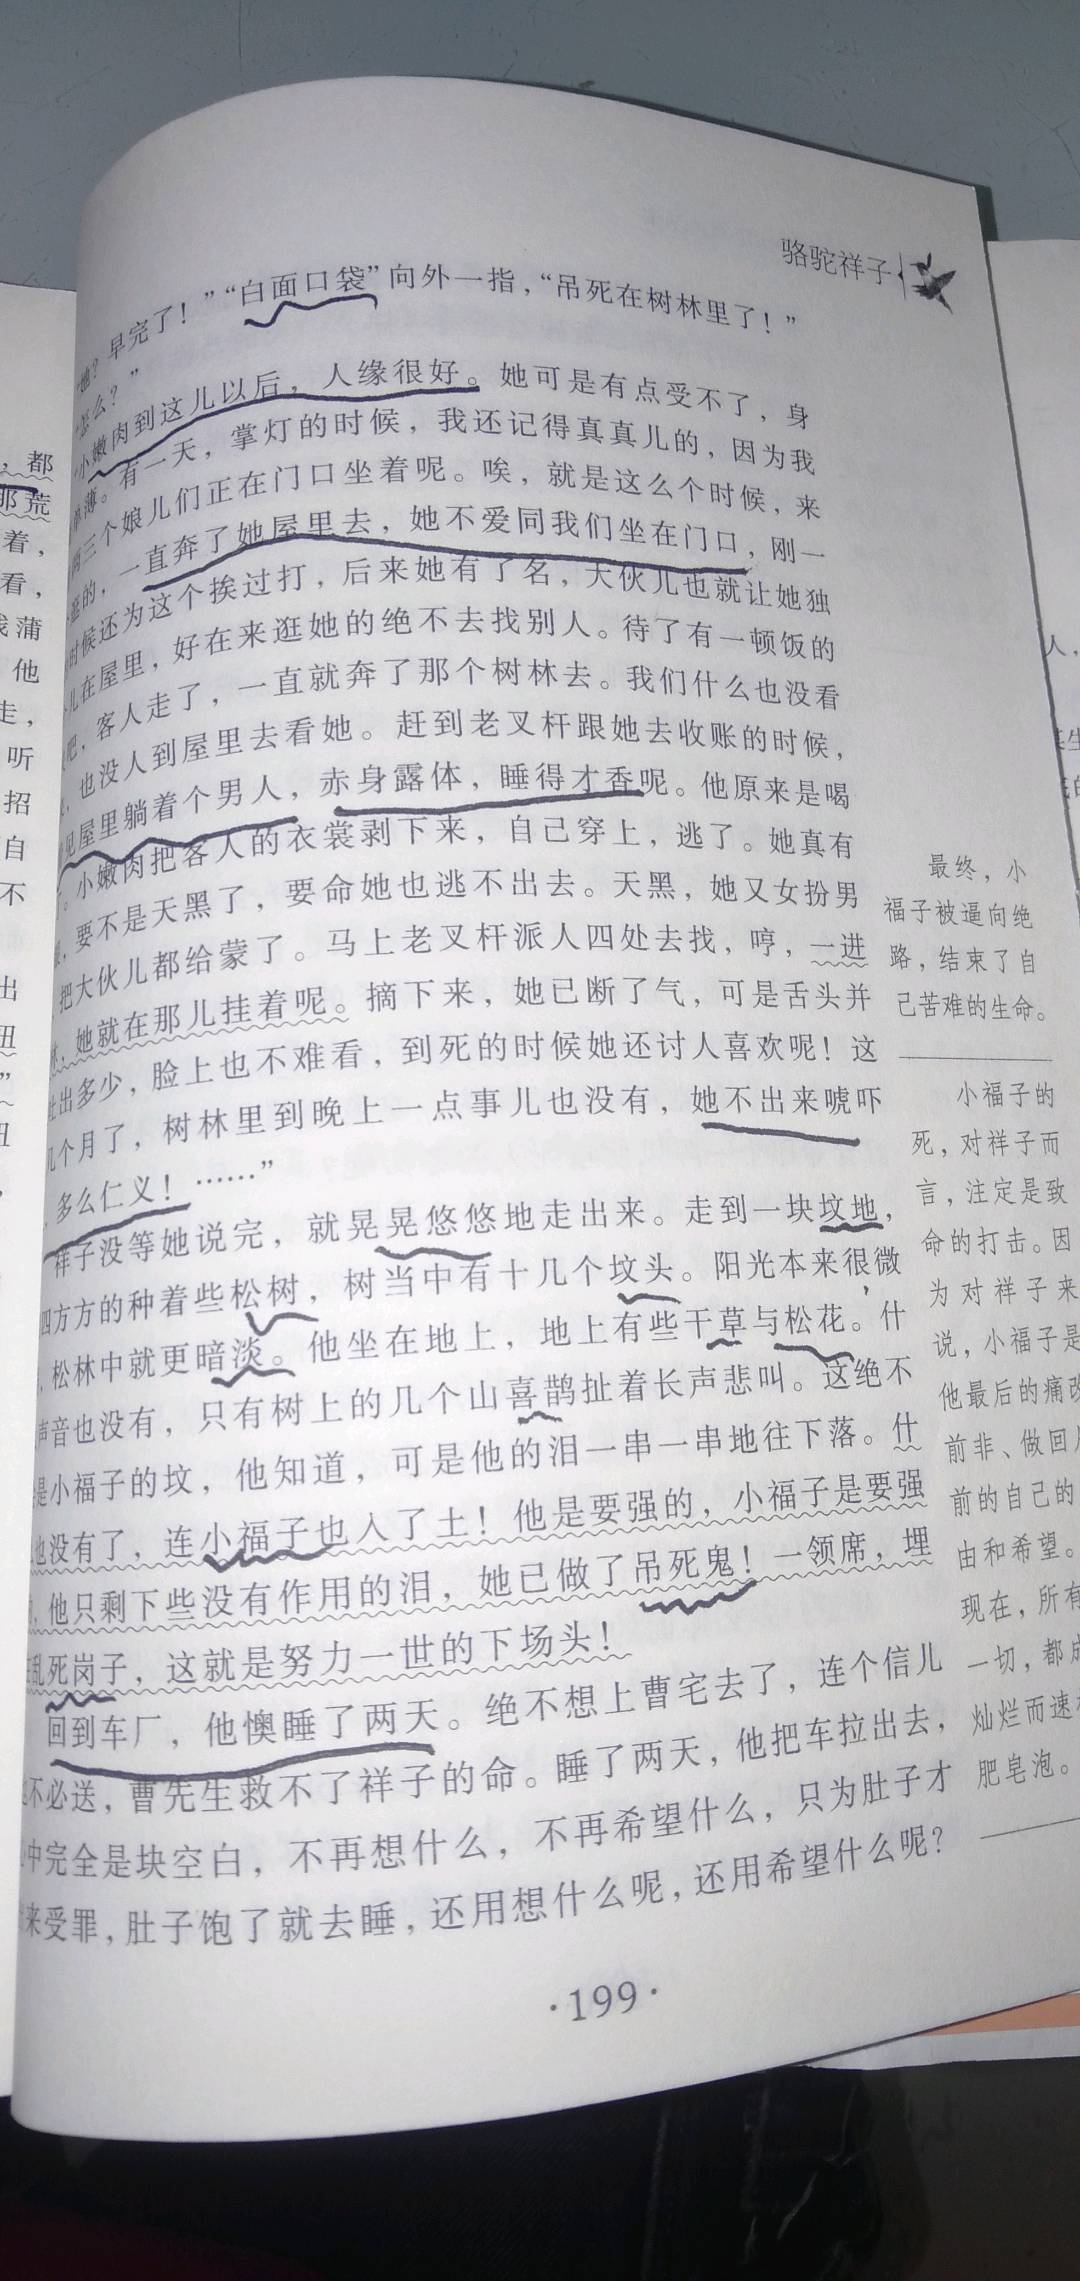 骆驼祥子
她？早完了！”“白面口袋”向外一指，“吊死在树林里了！”
“怎么？”
“小嫩肉到这儿以后，人缘很好。她可是有点受不了，身
单薄。有一天，掌灯的时候，我还记得真真儿的，因为我
两三个娘儿们正在门口坐着呢。唉，就是这么个时候，来
逛的，一直奔了她屋里去，她不爱同我们坐在门口，刚一
时候还为这个挨过打，后来她有了名，大伙儿也就让她独
儿在屋里，好在来逛她的绝不去找别人。待了有一顿饭的
吧，客人走了，一直就奔了那个树林去。我们什么也没看
，也没人到屋里去看她。赶到老叉杆跟她去收账的时候，
见屋里躺着个男人，赤身露体，睡得才香呢。他原来是喝
。小嫩肉把客人的衣裳剥下来，自己穿上，逃了。她真有
，要不是天黑了，要命她也逃不出去。天黑，她又女扮男
，把大伙儿都给蒙了。马上老叉杆派人四处去找，哼，一进
林，她就在那儿挂着呢。摘下来，她已断了气，可是舌头并
吐出多少，脸上也不难看，到死的时候她还讨人喜欢呢！这
几个月了，树林里到晚上一点事儿也没有，她不出来唬吓
，多么仁义！……”
祥子没等她说完，就晃晃悠悠地走出来。走到一块坟地，
四方方的种着些松树，树当中有十几个坟头。阳光本来很微
，松林中就更暗淡。他坐在地上，地上有些干草与松花。什
声音也没有，只有树上的几个山喜鹊扯着长声悲叫。这绝不
是小福子的坟，他知道，可是他的泪一串一串地往下落。什
也没有了，连小福子也入了土！他是要强的，小福子是要强
，他只剩下些没有作用的泪，她已做了吊死鬼！一领席，埋
乱死岗子，这就是努力一世的下场头！
回到车厂，他懊睡了两天。绝不想上曹宅去了，连个信儿
不必送，曹先生救不了祥子的命。睡了两天，他把车拉出去，
中完全是块空白，不再想什么，不再希望什么，只为肚子才
来受罪，肚子饱了就去睡，还用想什么呢，还用希望什么呢？
最终，小
福子被逼向绝
路，结束了自
己苦难的生命。
小福子的
死，对祥子而
言，注定是致
命的打击。因
为对祥子来
说，小福子是
他最后的痛改
前非、做回
前的自己的
由和希望。
现在，所有
一切，都成
灿烂而速
肥皂泡。
·199·
，都
那荒
着，
看，
蒲
他
走，
听
招
自
不
出